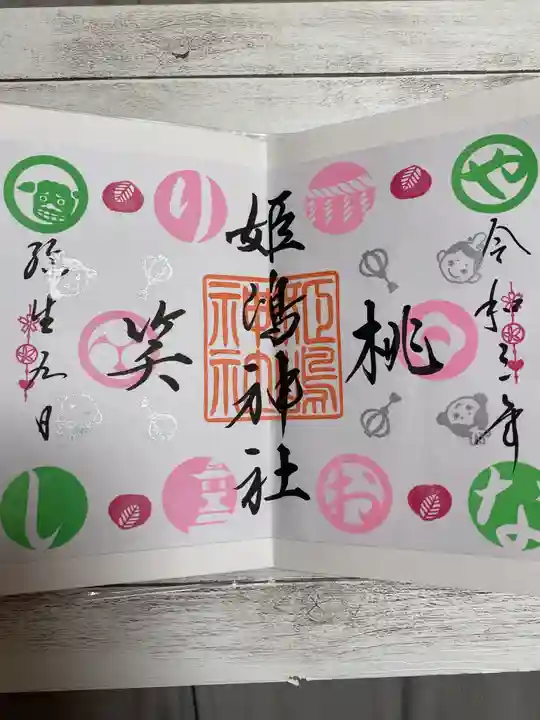 や
令和三年
桃
な
お
姫嶋神社
姫嶋神社
り
笑
弥生九日
し